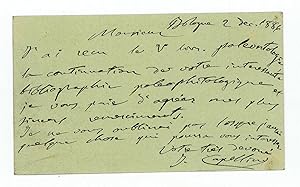 Bologne 2 dec. 1886
Monsieur
J'ai reçu la V livr. paleontologie
la continuation de votre interessante
bibliographie paleophitologique et
je vous prie d'agréer mes plus
sincers remerciments.
Je ne vous oublirai pas lorsque j'aurai
quelque chose qui pourra vous interesser
Votre très devoué
J. Capellini